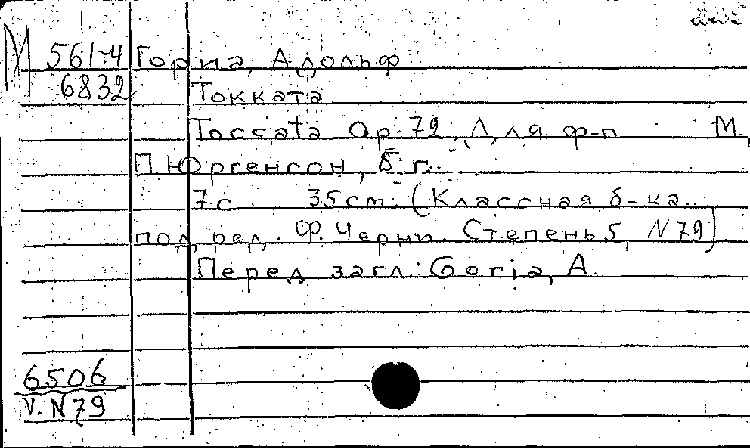 М 561-4 Гориа, Адольф
6832 Токката
Toccata Op. 79. Для ф-п М.,
П. Юргенсон, б. г.
7 с 35 см. (Классная б-ка..
под ред. Ф. Черни. Степень 5, N 79)
Перед загл.: Goria, A.
6506
V. N 79